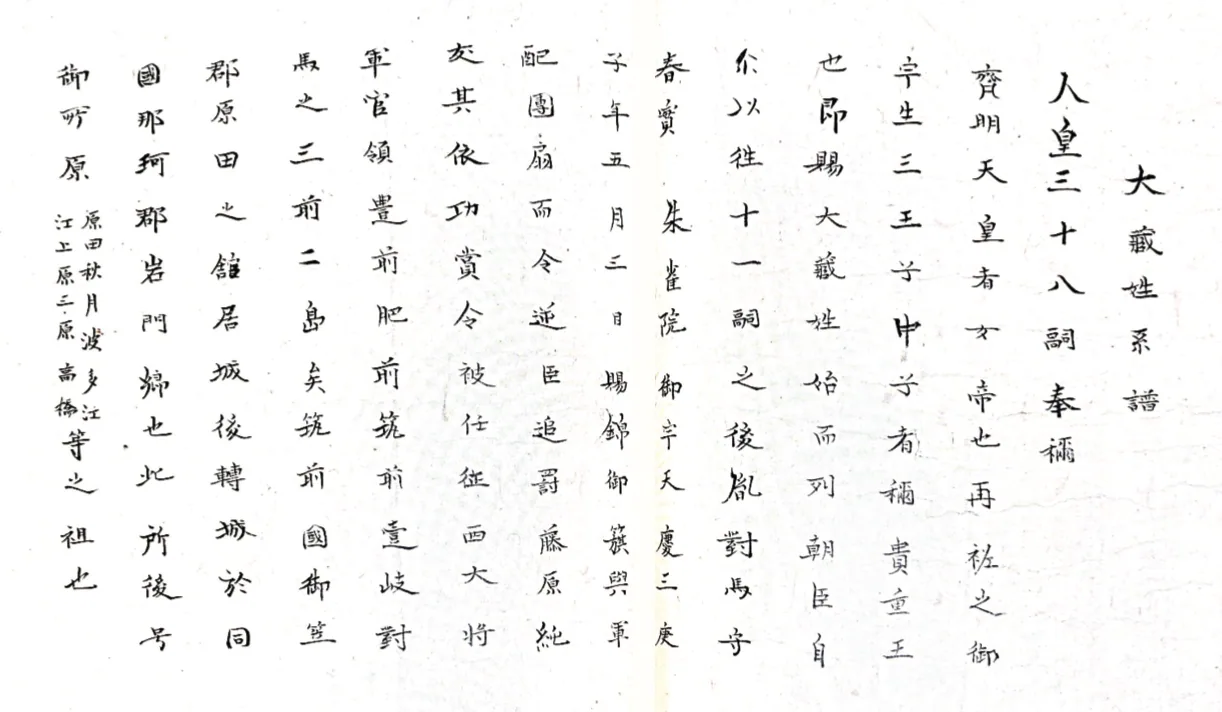 大藏姓系譜
人皇三十八嗣奉稱
齊明天皇者女帝也再祚之御
宇生三王子中子者稱貴重王
也即賜大藏姓始而列朝臣自
尒以徃十一嗣之後胤對馬守
春實朱雀院御宇天慶三庚
子年五月三日賜錦御籏與軍
配團扇而令逆臣追罸藤原純
友其依功賞令被任征西大將
軍官領豊前肥前筑前壹岐對
馬之三前二島矣筑前國御笠
郡原田之舘居城後轉城於同
國那珂郡岩門鄉也此所後号
御所原
原田秋月波多江
江上原三原高橋
等之祖也